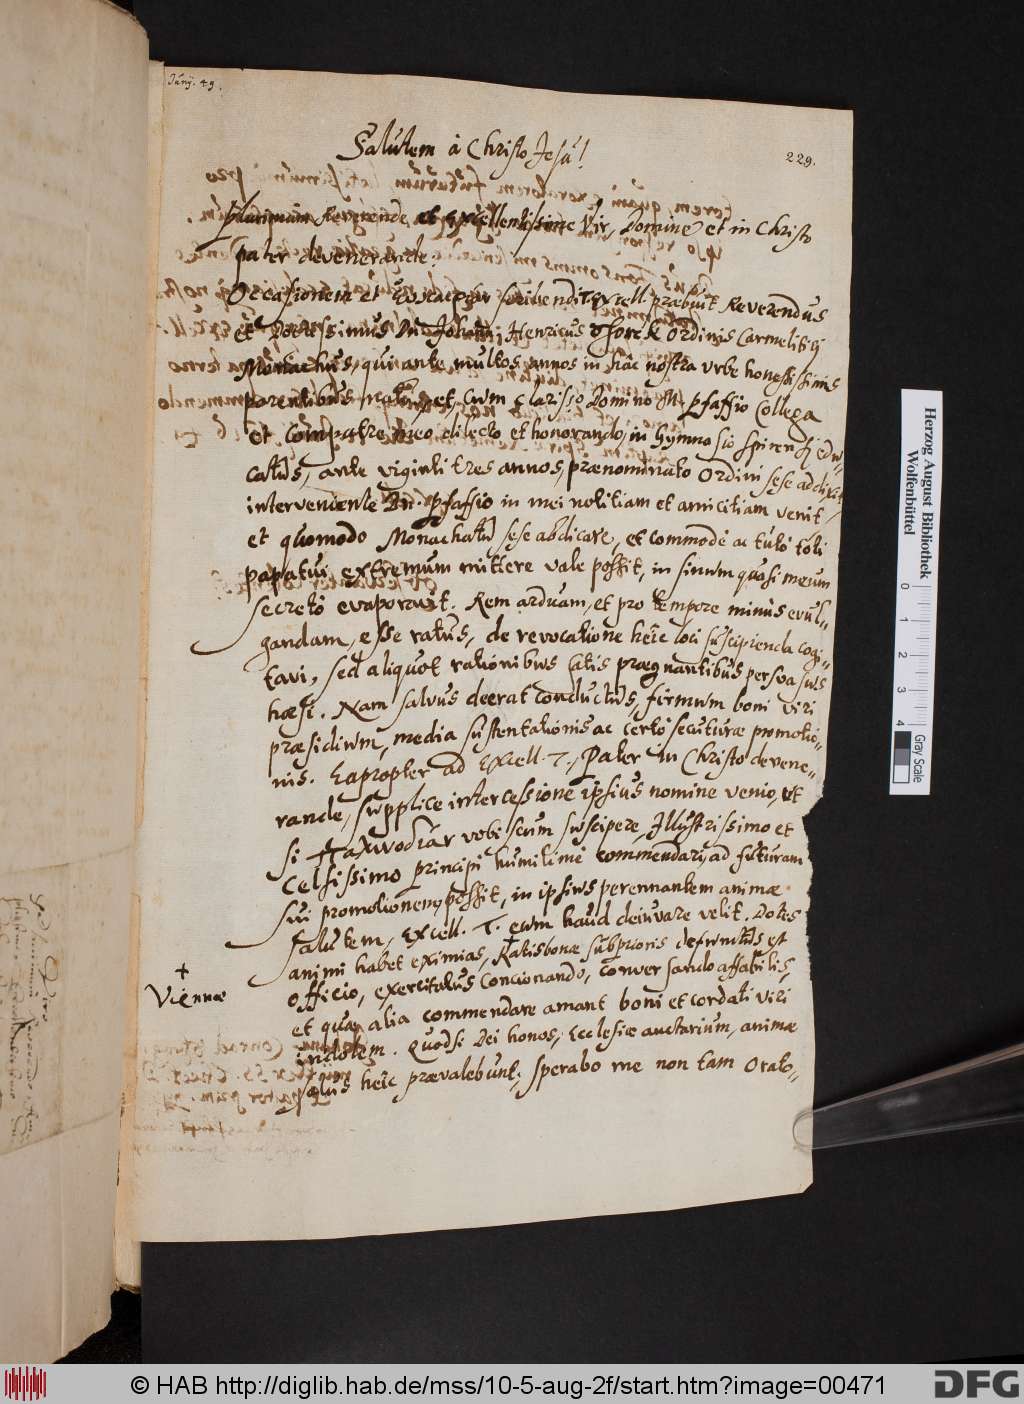 Junij. 49.
229.
Salutem à Christo Jesu!
Plurimum Reverende et Excellentissime Vir, Domine et in Christo
pater devenerande.
Occasionem et scribendi T. Excell. præbuit Reverendus
et Doctissimus Dn. Johann Henricus Ordinis Carmelitici
Monachus, qui ante multos annos in hâc nostra urbe honestissimis
parentibus natus, et cum clarisso Domino M. Pfaffio Collega
et compatre meo dilecto et honorando, in Gymnasio Spirensi edu-
catus, ante viginti tres annos, prænominato Ordini sese addixit,
interveniente Dn. Pfaffio in mei notitiam et amicitiam venit,
et quomodo Monachatu sese abdicare, et commodè ac tutò toti
papatui extremum mittere vale possit, in sinum quasi meum
secretò evaporavit. Rem arduam, et pro tempore minùs evul-
gandam, esse ratus, de revocatione heîc loci suscipienda cogi-
tavi, sed aliquot rationibus satis prægnantibus persuasus
hæsi. Nam salvus deerat conductus, firmum boni viri
præsidium, media sustentationis ac certò secuturæ promotio-
nis. Eapropter ad Excell. T., Pater in Christo devene-
rande, supplice intercessione ipsius nomine venio, ut
si vobiscum suscipere, Illustrissimo et
Celsissimo principi humilimè commendari, ad futuram
sui promotionem possit, in ipsius perennantem animæ
salutem, Excell. T. eum haud deiuvare velit. Dotes
animi habet eximias, Ratisbonæ subprioris defunctus est
officio, exercitatus concionando, conversando affabilis,
+
Viennæ
et quæ alia commendare amant boni et cordati viri
indolem. Quodsi Dei honos, Ecclesiæ auctarium, animæ
salus heîc prævalebunt, sperabo me non tam orato-
Herzog August Bibliothek
Wolfenbüttel
0 1 2 3 4
Gray Scale
© HAB http://diglib.hab.de/mss/10-5-aug-2f/start.htm?image=00471
DFG